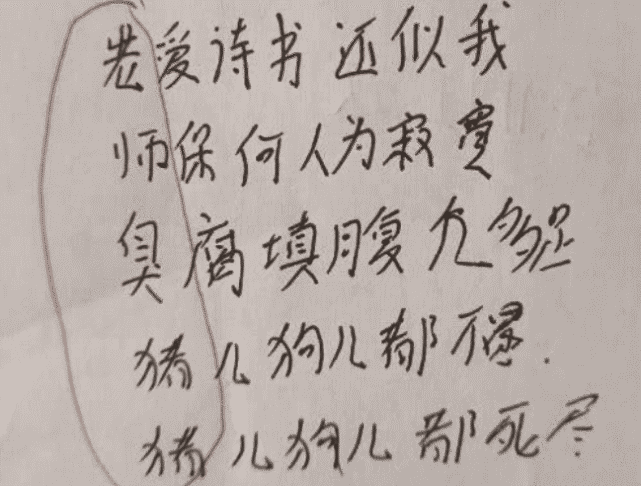 老爱诗书还似我
师保何人为寂寞
臭腐填腹尤多
猪儿狗儿都不
猪儿狗儿都死尽